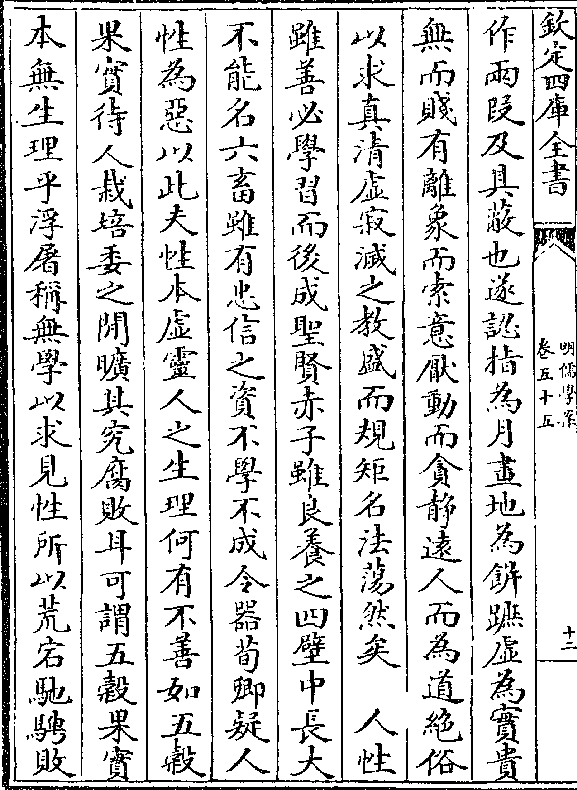 欽定四庫全書
明儒學案
卷五十五
十二
作兩段及其蔽也遂認指為月畫地為餅蹠虛為實貴
無而賤有離象而索意厭動而貪静遠人而為道絶俗
以求真清虛寂滅之教盛而規矩名法蕩然矣　人性
雖善必學習而後成聖賢赤子雖良養之四壁中長大
不能名六畜雖有忠信之資不學不成令器荀卿疑人
性為惡以此夫性本虛靈人之生理何有不善如五穀
果實待人栽培委之閒曠其究腐敗耳可謂五穀果實
本無生理乎浮屠稱無學以求見性所以荒宕馳騁敗